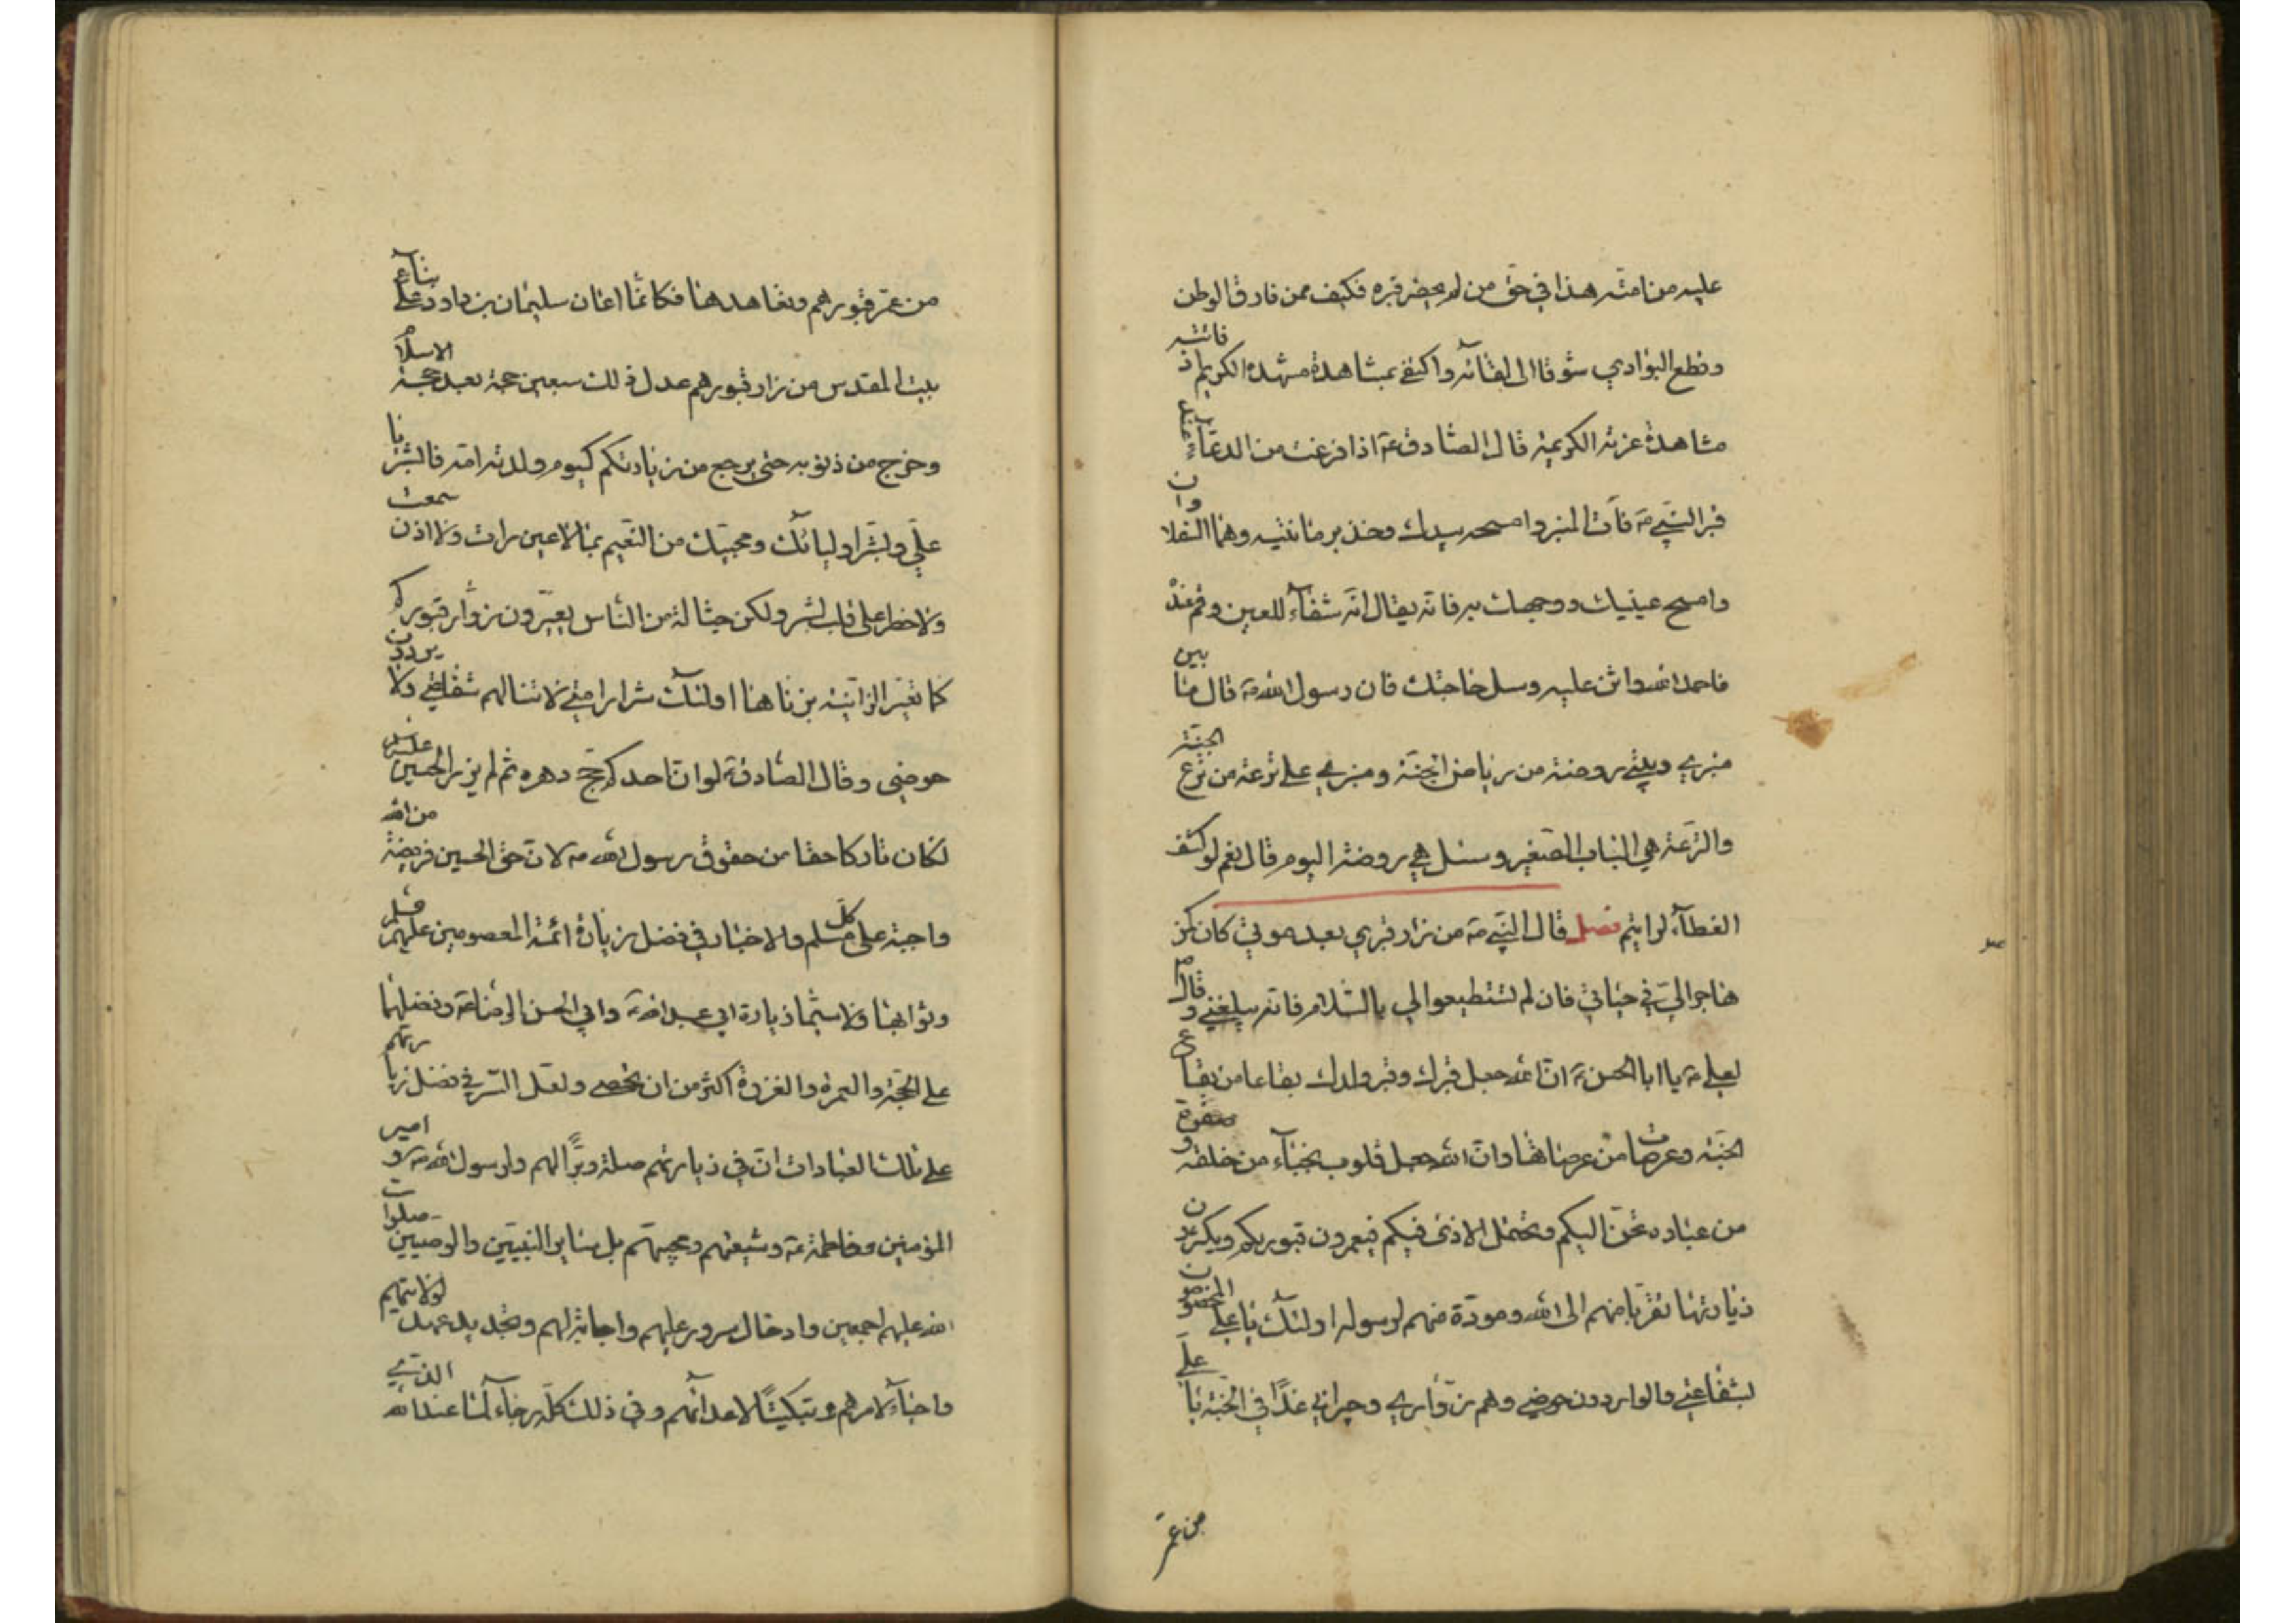 عليه من امته هذا في حق من لم يحضر قبره فكيف ممن فارق الوطن
وقطع البوادي شوقا الى لقائه واكتفى بمشاهدة مشهده الكريم اذ فاتته
مشاهدة غرته الكريمة قال الصادق ع اذا فرغت من الدعاء عند
قبر النبي ص فات المنبر وامسحه بيدك وخذ برمانتيه وهما السفلاوان
وامسح عينيك ووجهك به فانه يقال انه شفاء للعين وقم عنده
فاحمد الله واثن عليه وسل حاجتك فان رسول الله ص قال ما بين
منبري وبيتي روضة من رياض الجنة ومنبري على ترعة من ترع الجنة
والترعة هي الباب الصغير وسئل هي روضة اليوم قال نعم لو كشف
الغطاء لرايتم فصل قال النبي ص من زار قبري بعد موتي كان كمن
هاجر الي في حياتي فان لم تستطيعوا الي بالسلام فانه يبلغني وقال م
لعلي ع يا ابا الحسن ع ان الله جعل قبرك وقبر ولدك بقاعا من بقاع
الجنة وعرصات من عرصاتها وان الله جعل قلوب نجباء من خلقه وصفوة
من عباده تحن اليكم وتحتمل الاذى فيكم فيعمرون قبوركم ويكثرون
زيارتها تقربا منهم الى الله ومودة منهم لرسوله اولئك يا علي المخصوصون
بشفاعتي والواردون حوضي وهم زواري وجيراني غدا في الجنة يا علي
من عمر
من عمر قبورهم وتعاهدها فكانما اعان سليمان بن داود على بناء
بيت المقدس من زار قبورهم عدل ذلك سبعين حجة بعد حجة الاسلام
وخرج من ذنوبه حتى يرجع من زيارتكم كيوم ولدته امه فابشر يا
علي وبشر اوليائك ومحبيك من النعيم بما لا عين رات ولا اذن سمعت
ولا خطر على قلب بشر ولكن حثالة من الناس يعيرون زوار قبوركم
كما تعير الزانية بزناها اولئك شرار امتي لا تنالهم شفاعتي ولا يردون
حوضي وقال الصادق ع لو ان احدكم حج دهره ثم لم يزر الحسين عليه
لكان تاركا حقا من حقوق رسول الله ص لان حق الحسين فريضة من الله
واجبة على كل مسلم والاخبار في فضل زيارة ائمة المعصومين عليهم
وثوابها ولا سيما زيارة ابي عبد الله ع وابي الحسن الرضا ع وفضلها
على الحجة والعمرة والغزوة اكثر من ان تحصى ولعل السر في فضل زيارتهم
على تلك العبادات ان في زيارتهم صلة وبرا لهم ولرسول الله ص وامير
المؤمنين وفاطمة ع وشيعتهم ومحبيهم بل سائر النبيين والوصيين صلوات
الله عليهم اجمعين وادخال سرور عليهم واجابة لهم وتجديد عهد لولايتهم
واحياء لامرهم وتبكيتا لاعدائهم وفي ذلك كله رجاء لما عند الله الذي